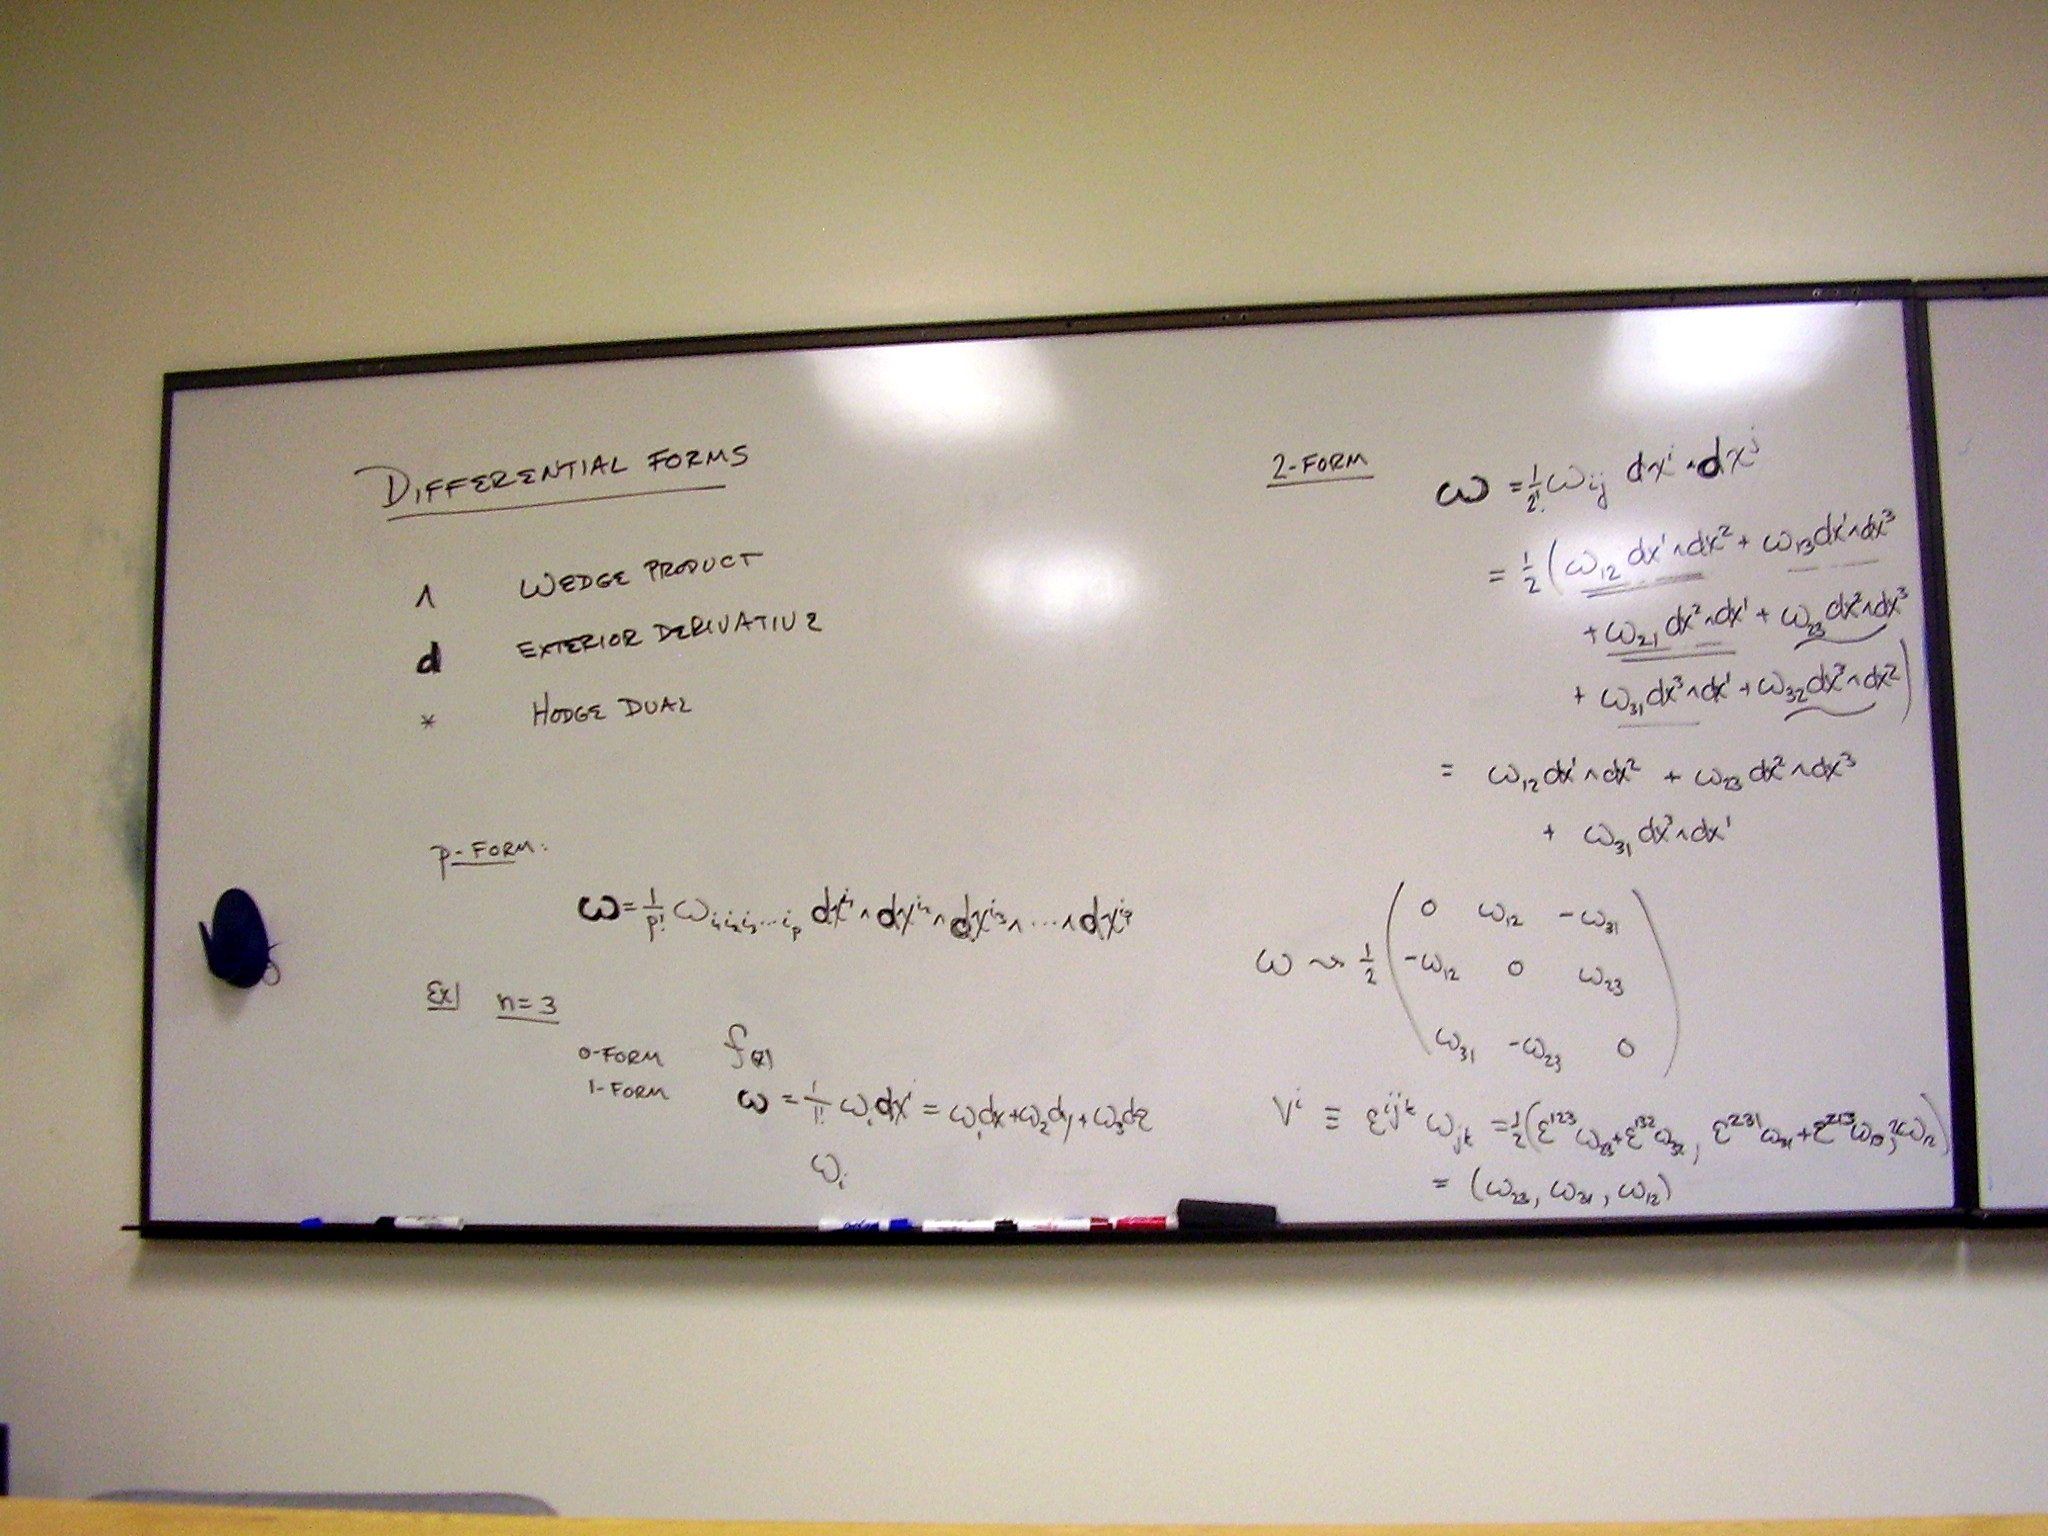 DIFFERENTIAL FORMS
∧ WEDGE PRODUCT
d EXTERIOR DERIVATIVE
* HODGE DUAL
p-FORM:
ω = 1/p! ω_{i₁i₂i₃…i_p} dx^{i₁} ∧ dx^{i₂} ∧ dx^{i₃} ∧ … ∧ dx^{i_p}
Ex) n = 3
0-FORM f(x)
1-FORM ω = 1/1! ω_i dx^i = ω₁dx + ω₂dy + ω₃dz
ω_i
2-FORM ω = 1/2! ω_{ij} dx^i ∧ dx^j
= 1/2 ( ω₁₂ dx¹∧dx² + ω₁₃ dx¹∧dx³
+ ω₂₁ dx²∧dx¹ + ω₂₃ dx²∧dx³
+ ω₃₁ dx³∧dx¹ + ω₃₂ dx³∧dx² )
= ω₁₂ dx¹∧dx² + ω₂₃ dx²∧dx³
+ ω₃₁ dx³∧dx¹
ω ~ 1/2 ( 0 ω₁₂ -ω₃₁
-ω₁₂ 0 ω₂₃
ω₃₁ -ω₂₃ 0 )
V^i ≡ ε^{ijk} ω_{jk} = 1/2 ( ε^{123} ω₂₃ + ε^{132} ω₃₂, ε^{231} ω₃₁ + ε^{213} ω₁₃, 2ω₁₂ )
= (ω₂₃, ω₃₁, ω₁₂)